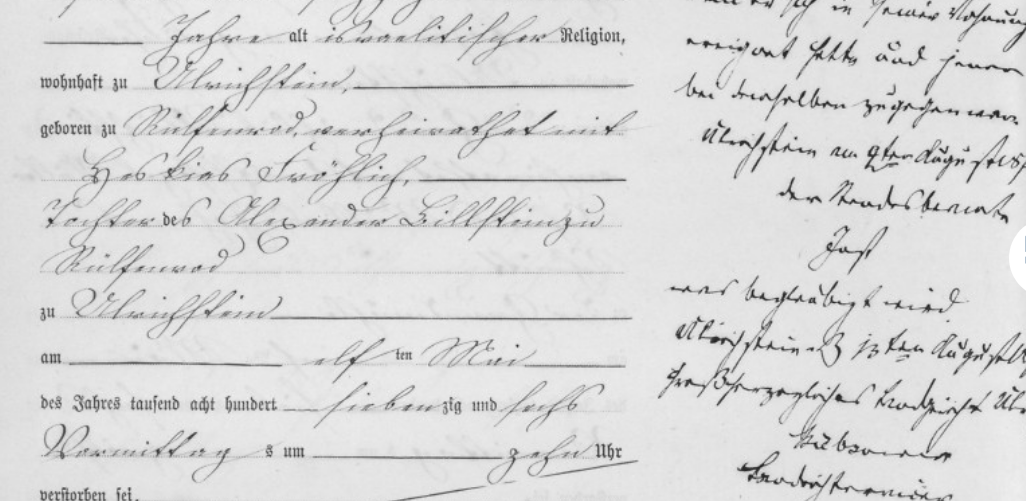 Jahre alt israelitischer Religion,
wohnhaft zu Ulrichstein,
geboren zu Rülfenrod, verheirathet mit
Heskias Fröhlich,
Tochter des Alexander Billstein zu
Rülfenrod
zu Ulrichstein
am elf ten Mai
des Jahres tausend acht hundert siebenzig und sechs
Vormittag s um zehn Uhr
verstorben sei,
sich in seiner Wohnung
ereignet hatte und
bei derselben zugegen
Ulrichstein am 9ten August
der Standesbeamte
was beglaubigt wird
Ulrichstein 13ten August
Großherzogliches Landgericht